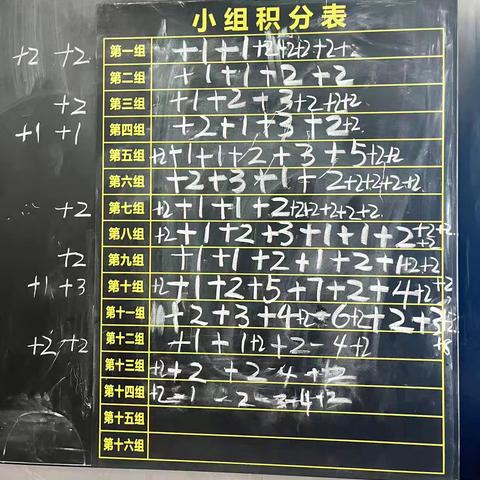 小组积分表
+2 +2 第一组 +1+1+2+2+2+2+2
第二组 +1+1+2+2
+2 第三组 +1+2+3+2+2+2
+1 +1 第四组 +2+1+3+2+2
第五组 +2+1+1+2+3+5+2+2
第六组 +2+3+1-2+2+2+2+2
+2 第七组 +2+1+1+2+2+2+2+2+2
第八组 +2+1+2+3+1+1+2+2+2+2
+2 第九组 +1+1+2+1+2+1+2+2
+1 +3 第十组 +2+1+2+5+7+2+4+2
第十一组 +2+3+4+2-6+2+2+3
+2 +2 第十二组 +1+1+2+2-4+2
第十三组 +2+2+2-4+2
第十四组 +2-1-2-3+4+2
第十五组
第十六组